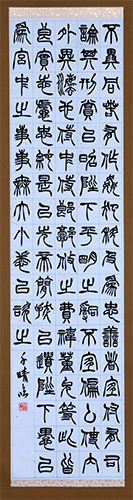 不異同若有作姦犯科及為忠善者宜付有司
論其刑賞以昭陛下平明之不宜偏私使内
外異法也侍中侍郎郭攸之費禕董允等此皆
良實志慮忠純是以先帝簡拔以遺陛下愚以
為宮中之事事無大小悉以咨之